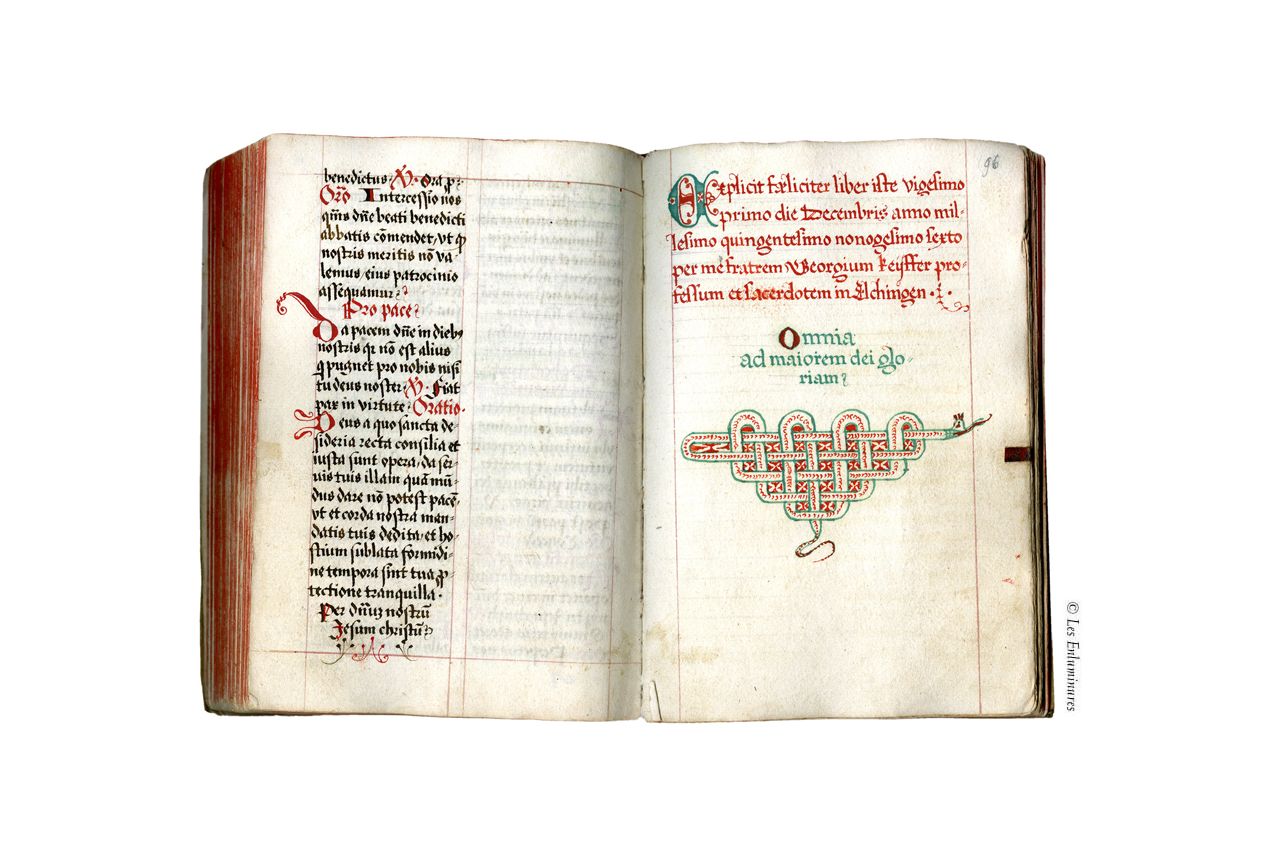 benedictus. V̄. Ora p̄:
Orō Intercessio nos
qm̄s dn̄e beati benedicti
abbatis cōmendet, vt q̄
nostris meritis nō va-
lemus, eius patrocinio
assequamur.
Pro pace
Da pacem dn̄e in dieb9
nostris qr nō est alius
q̄ pugnet pro nobis nisi
tu deus noster. V̄. Fiat
pax in virtute. Oratio.
Deus a quo sancta de-
sideria recta consilia et
iusta sunt opera, da ser-
uis tuis illam quā mū-
dus dare nō potest pacē,
vt et corda nostra man-
datis tuis dedita, et ho-
stium sublata formidi-
ne tempora sint tua p̄-
tectione tranquilla.
Per dn̄m nostrū
Jesum christū
96
Explicit fæliciter liber iste vigesimo
primo die Decembris anno mil-
lesimo quingentesimo nonogesimo sexto
per me fratrem Georgium Keyffer pro-
fessum et sacerdotem in Elchingen.
Omnia
ad maiorem dei glo-
riam
© Les Enluminures